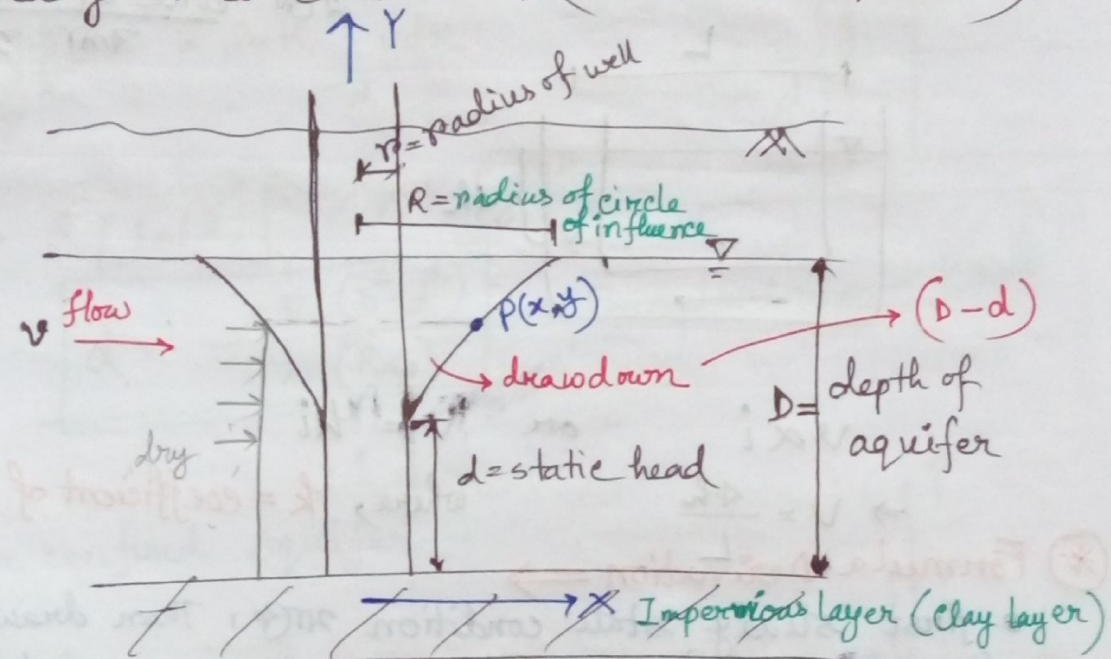 Y
r = radius of well
R = radius of circle
of influence
flow
v
P(x,y)
(D-d)
drawdown
D = depth of
aquifer
dry
d = static head
X
Impervious layer (Clay layer)